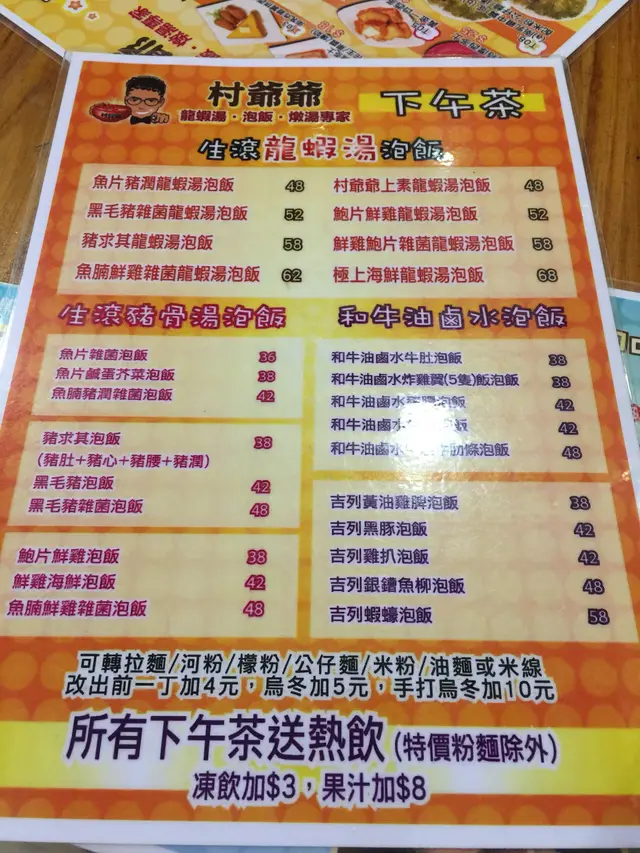 村爺爺
龍蝦湯·泡飯·燉湯專家
下午茶
生滾龍蝦湯泡飯
魚片豬潤龍蝦湯泡飯 48
黑毛豬雜菌龍蝦湯泡飯 52
豬求其龍蝦湯泡飯 58
魚腩鮮雞雜菌龍蝦湯泡飯 62
村爺爺上素龍蝦湯泡飯 48
鮑片鮮雞龍蝦湯泡飯 52
鮮雞鮑片雜菌龍蝦湯泡飯 58
極上海鮮龍蝦湯泡飯 68
生滾豬骨湯泡飯
魚片雜菌泡飯 36
魚片鹹蛋芥菜泡飯 38
魚腩豬潤雜菌泡飯 42
豬求其泡飯 38
(豬肚+豬心+豬腰+豬潤)
黑毛豬泡飯 42
黑毛豬雜菌泡飯 48
鮑片鮮雞泡飯 38
鮮雞海鮮泡飯 42
魚腩鮮雞雜菌泡飯 48
和牛油鹵水泡飯
和牛油鹵水牛肚泡飯 38
和牛油鹵水炸雞翼(5隻)飯泡飯 38
和牛油鹵水 泡飯 42
和牛油鹵水 飯 42
和牛油鹵水 肋條泡飯 48
吉列黃油雞脾泡飯 38
吉列黑豚泡飯 42
吉列雞扒泡飯 42
吉列銀鱈魚柳泡飯 48
吉列蝦蠔泡飯 58
可轉拉麵/河粉/檬粉/公仔麵/米粉/油麵或米線
改出前一丁加4元，烏冬加5元，手打烏冬加10元
所有下午茶送熱飲(特價粉麵除外)
凍飲加$3，果汁加$8